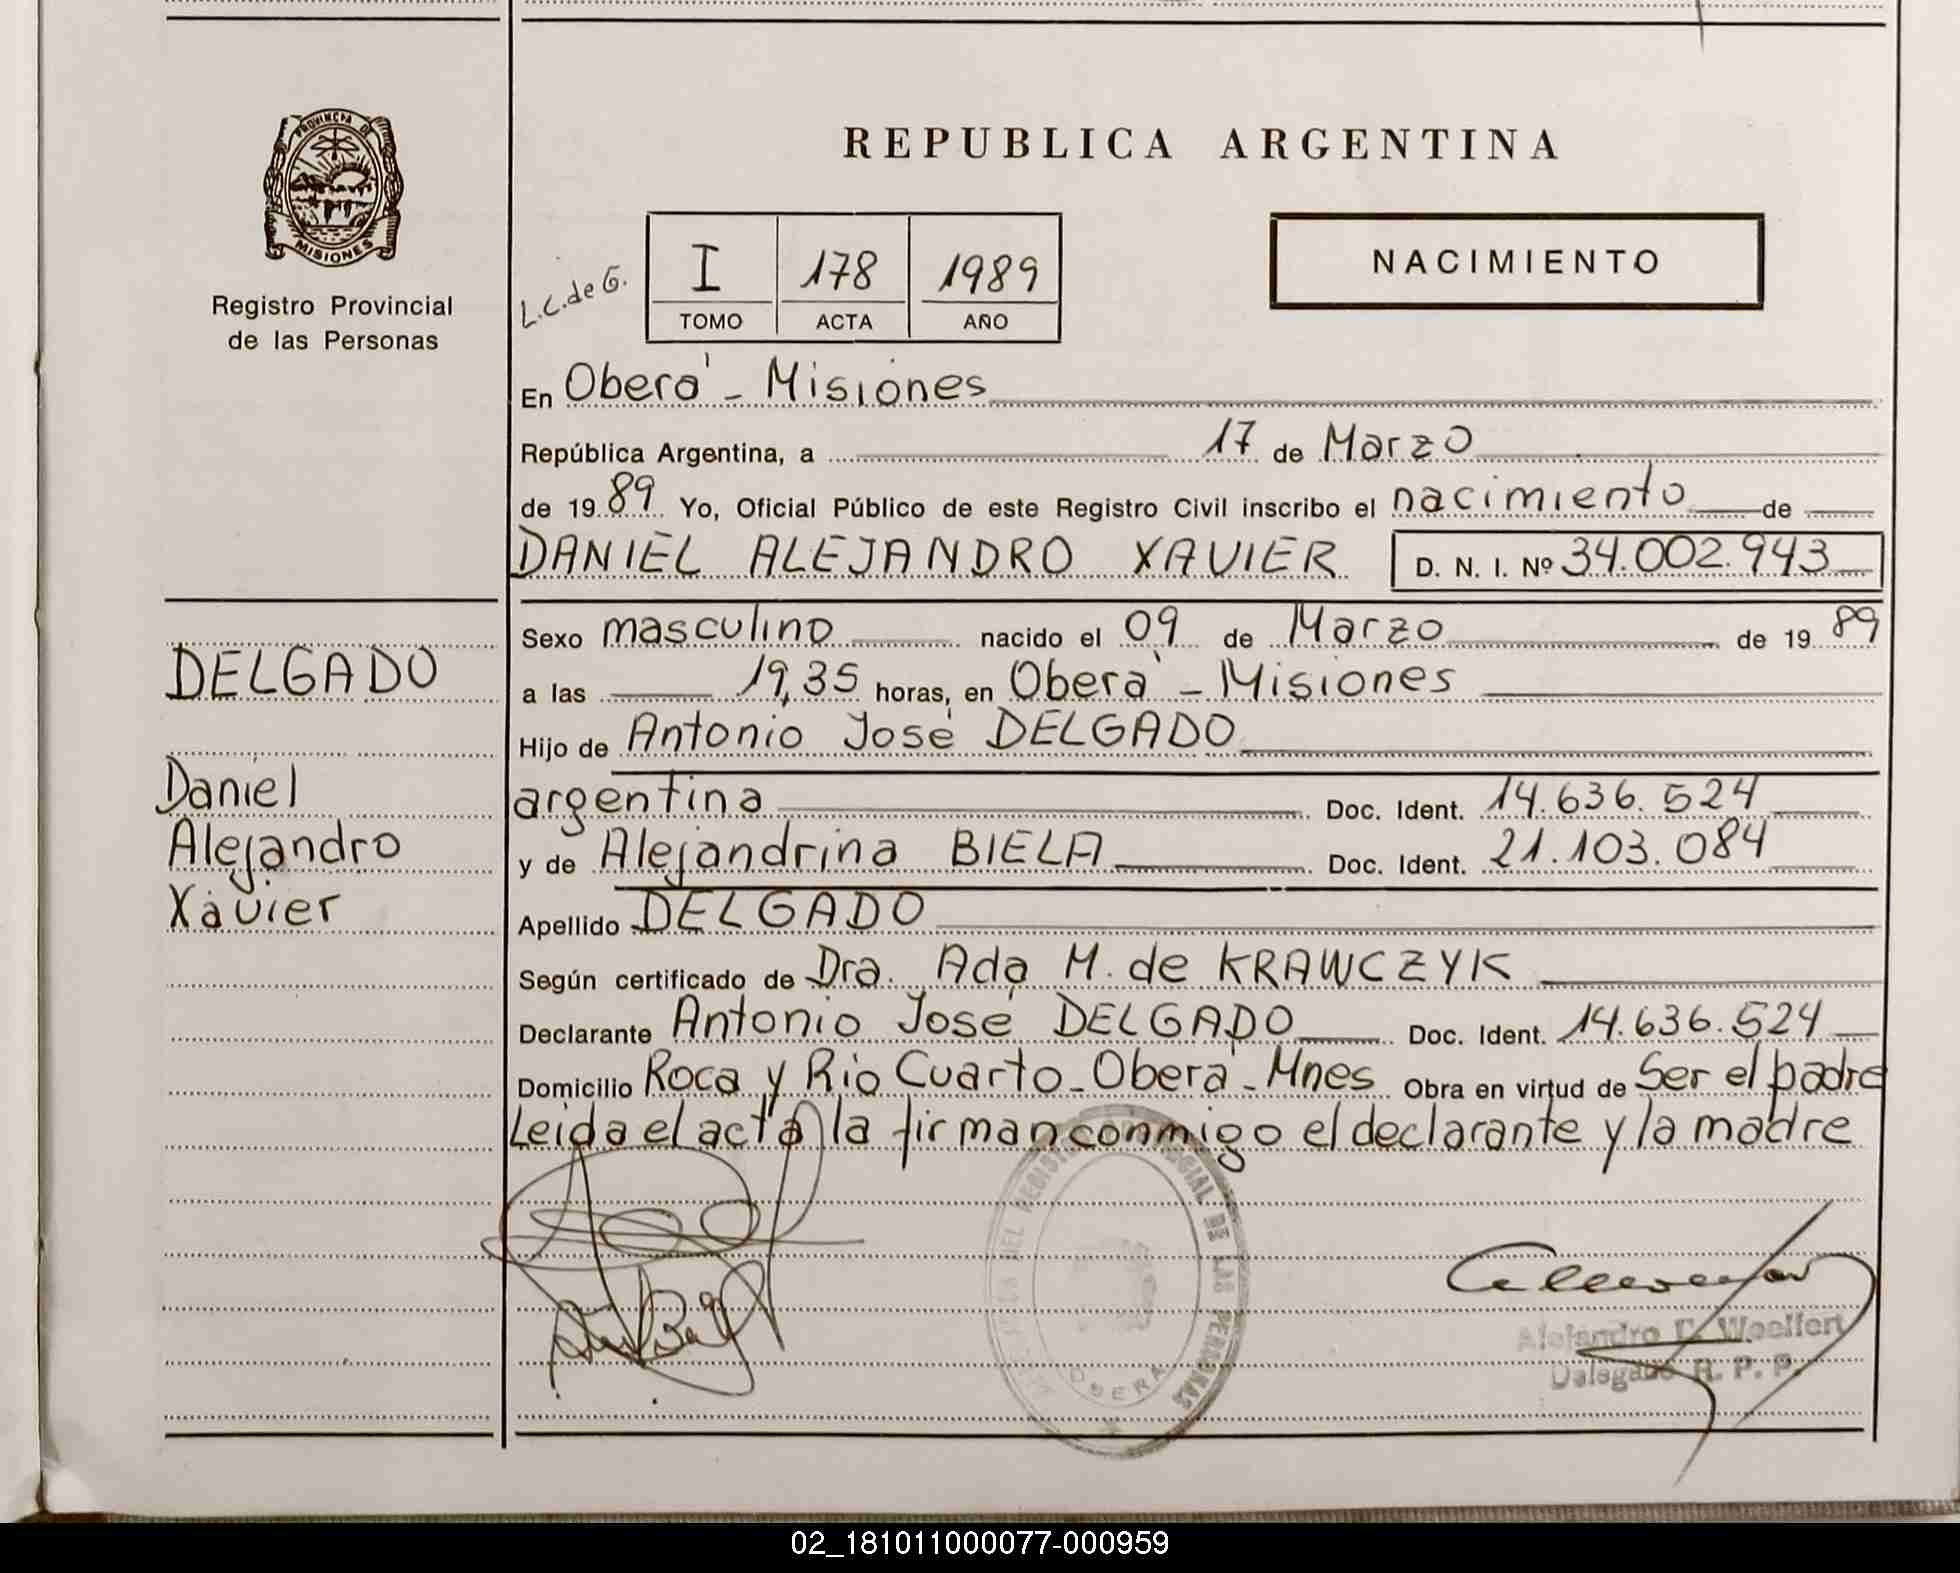 REPUBLICA ARGENTINA
PROVINCIA DE
MISIONES
Registro Provincial
de las Personas
L.C. de G.
I 178 1989
TOMO ACTA AÑO
NACIMIENTO
En Oberá - Misiones
República Argentina, a 17 de Marzo
de 1989 Yo, Oficial Público de este Registro Civil inscribo el nacimiento de
DANIEL ALEJANDRO XAVIER D. N. I. Nº 34.002.943
DELGADO
Daniel
Alejandro
Xavier
Sexo masculino nacido el 09 de Marzo de 1989
a las 19,35 horas, en Oberá - Misiones
Hijo de Antonio José DELGADO
argentina Doc. Ident. 14.636.524
y de Alejandrina BIELA Doc. Ident. 21.103.084
Apellido DELGADO
Según certificado de Dra. Ada M. de KRAWCZYK
Declarante Antonio José DELGADO Doc. Ident. 14.636.524
Domicilio Roca y Río Cuarto - Oberá - Mnes Obra en virtud de Ser el padre
Leida el acta la firman conmigo el declarante y la madre
DEL REGISTRO PROVINCIAL DE LAS PERSONAS
OBERA
Alejandro Woelfert
Delegado R. P. P.
02_181011000077-000959